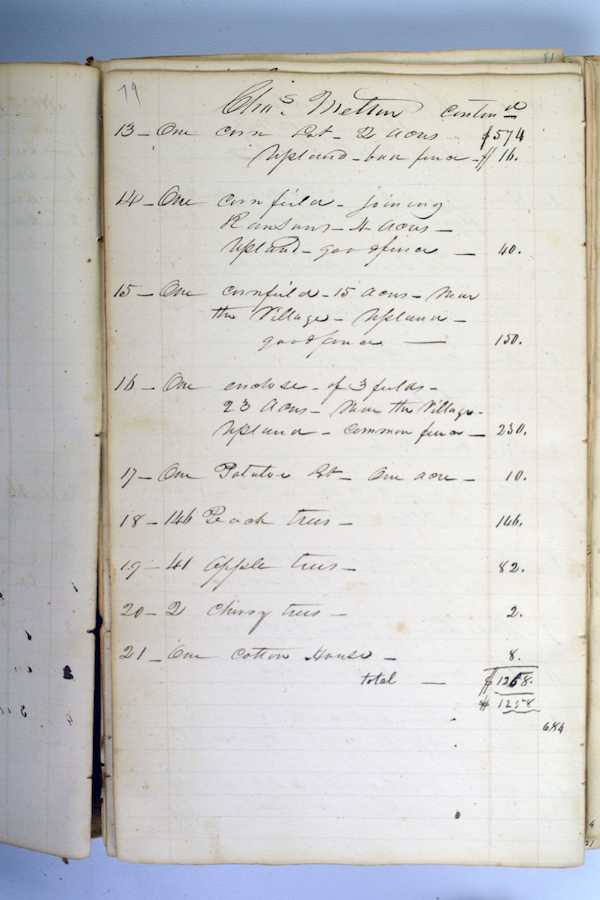 79
Chas. Melton contind
13 - One corn Lot - 2 acres $574
Upland - bad fence - $16.
14 - One cornfield - joining
Ransons - 4 acres -
Upland - good fence - 40.
15 - One cornfield - 15 acres - Near
the Village - Upland -
good fence - 150.
16 - One enclose - of 3 fields -
23 Acres - Near the Village -
Upland - common fence - 230.
17 - One Potatoe Lot - One acre - 10.
18 - 146 Peach trees - 146.
19 - 41 Apple trees - 82.
20 - 2 Cherry trees - 2.
21 - One Cotton House - 8.
total - $1258.
$1258
684